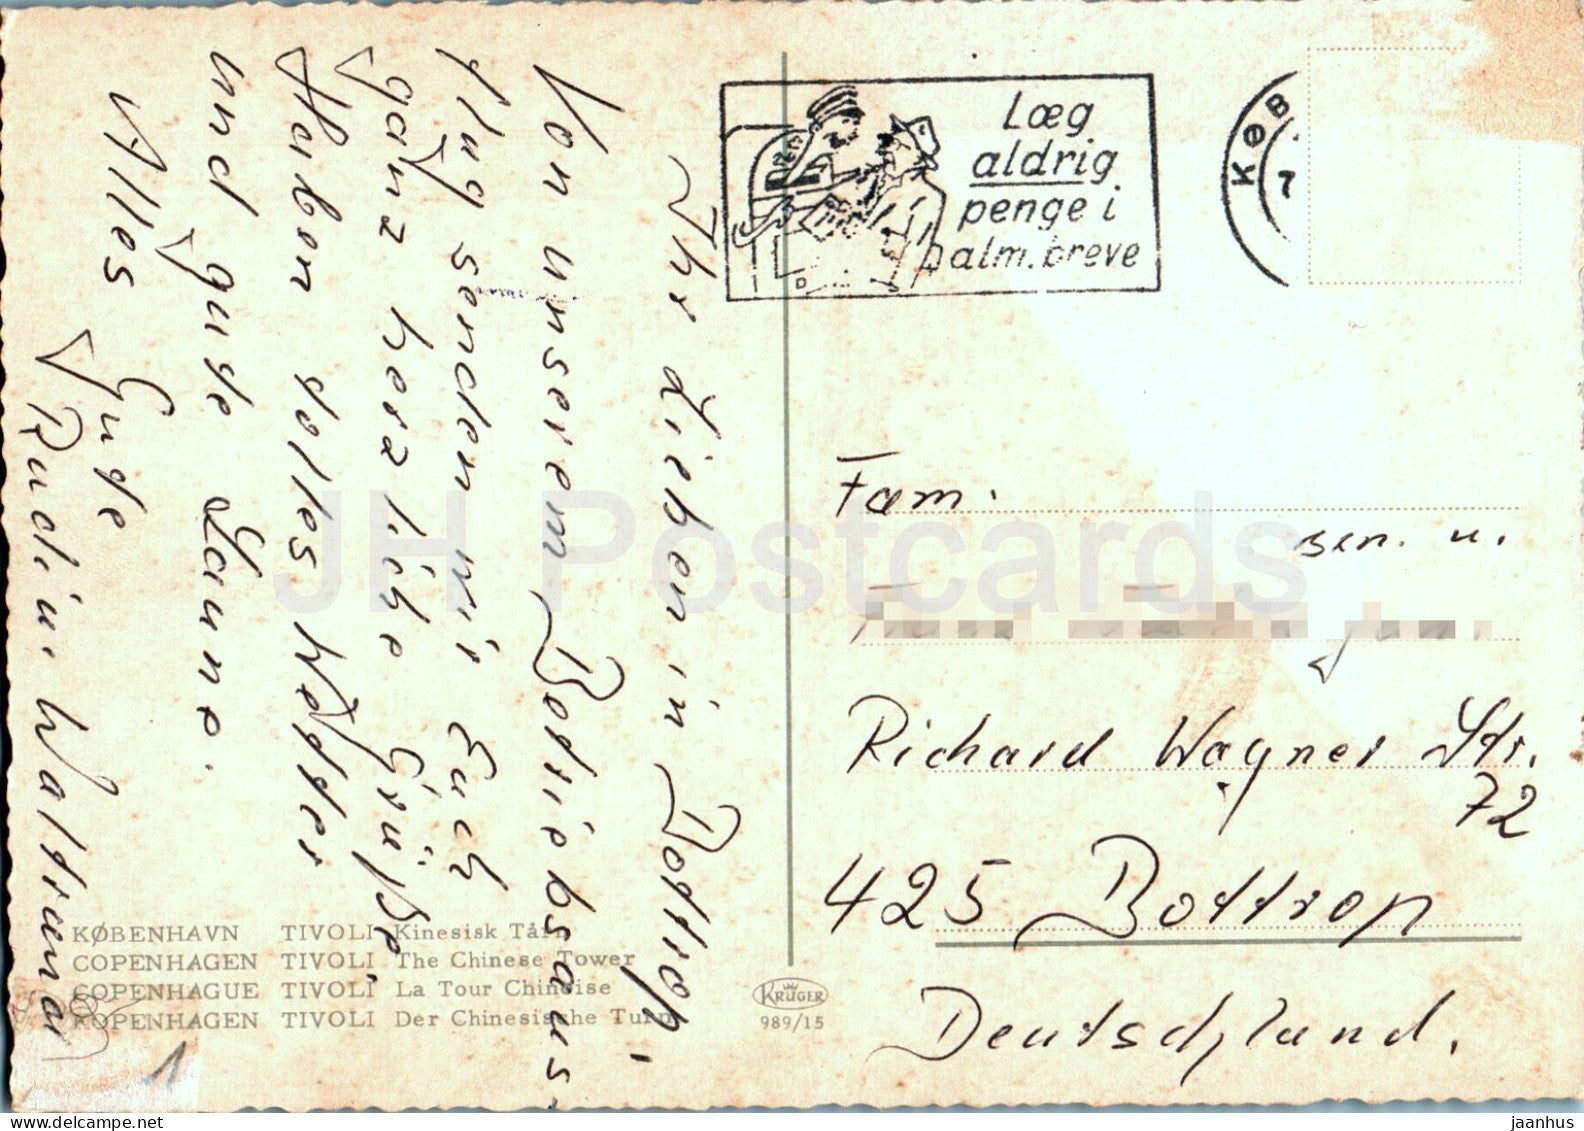 Ihr Lieben in Bottrop,
Von unserem Betriebsaus-
flug senden wir Euch
ganz herzliche Grüße,
Haben tolles Wetter
und gute Laune.
Alles Gute
Rudi u. Waltraud
Læg
aldrig
penge i
alm. breve
KØB
7
Fam.
sen. u.
jun.
Richard Wagner Str.
72
425 Bottrop
Deutschland.
KØBENHAVN TIVOLI Kinesisk Tårn
COPENHAGEN TIVOLI The Chinese Tower
COPENHAGUE TIVOLI La Tour Chinoise
KOPENHAGEN TIVOLI Der Chinesische Turm
KRÜGER
989/15
1
JH Postcards
delcampe.net
jaanhus